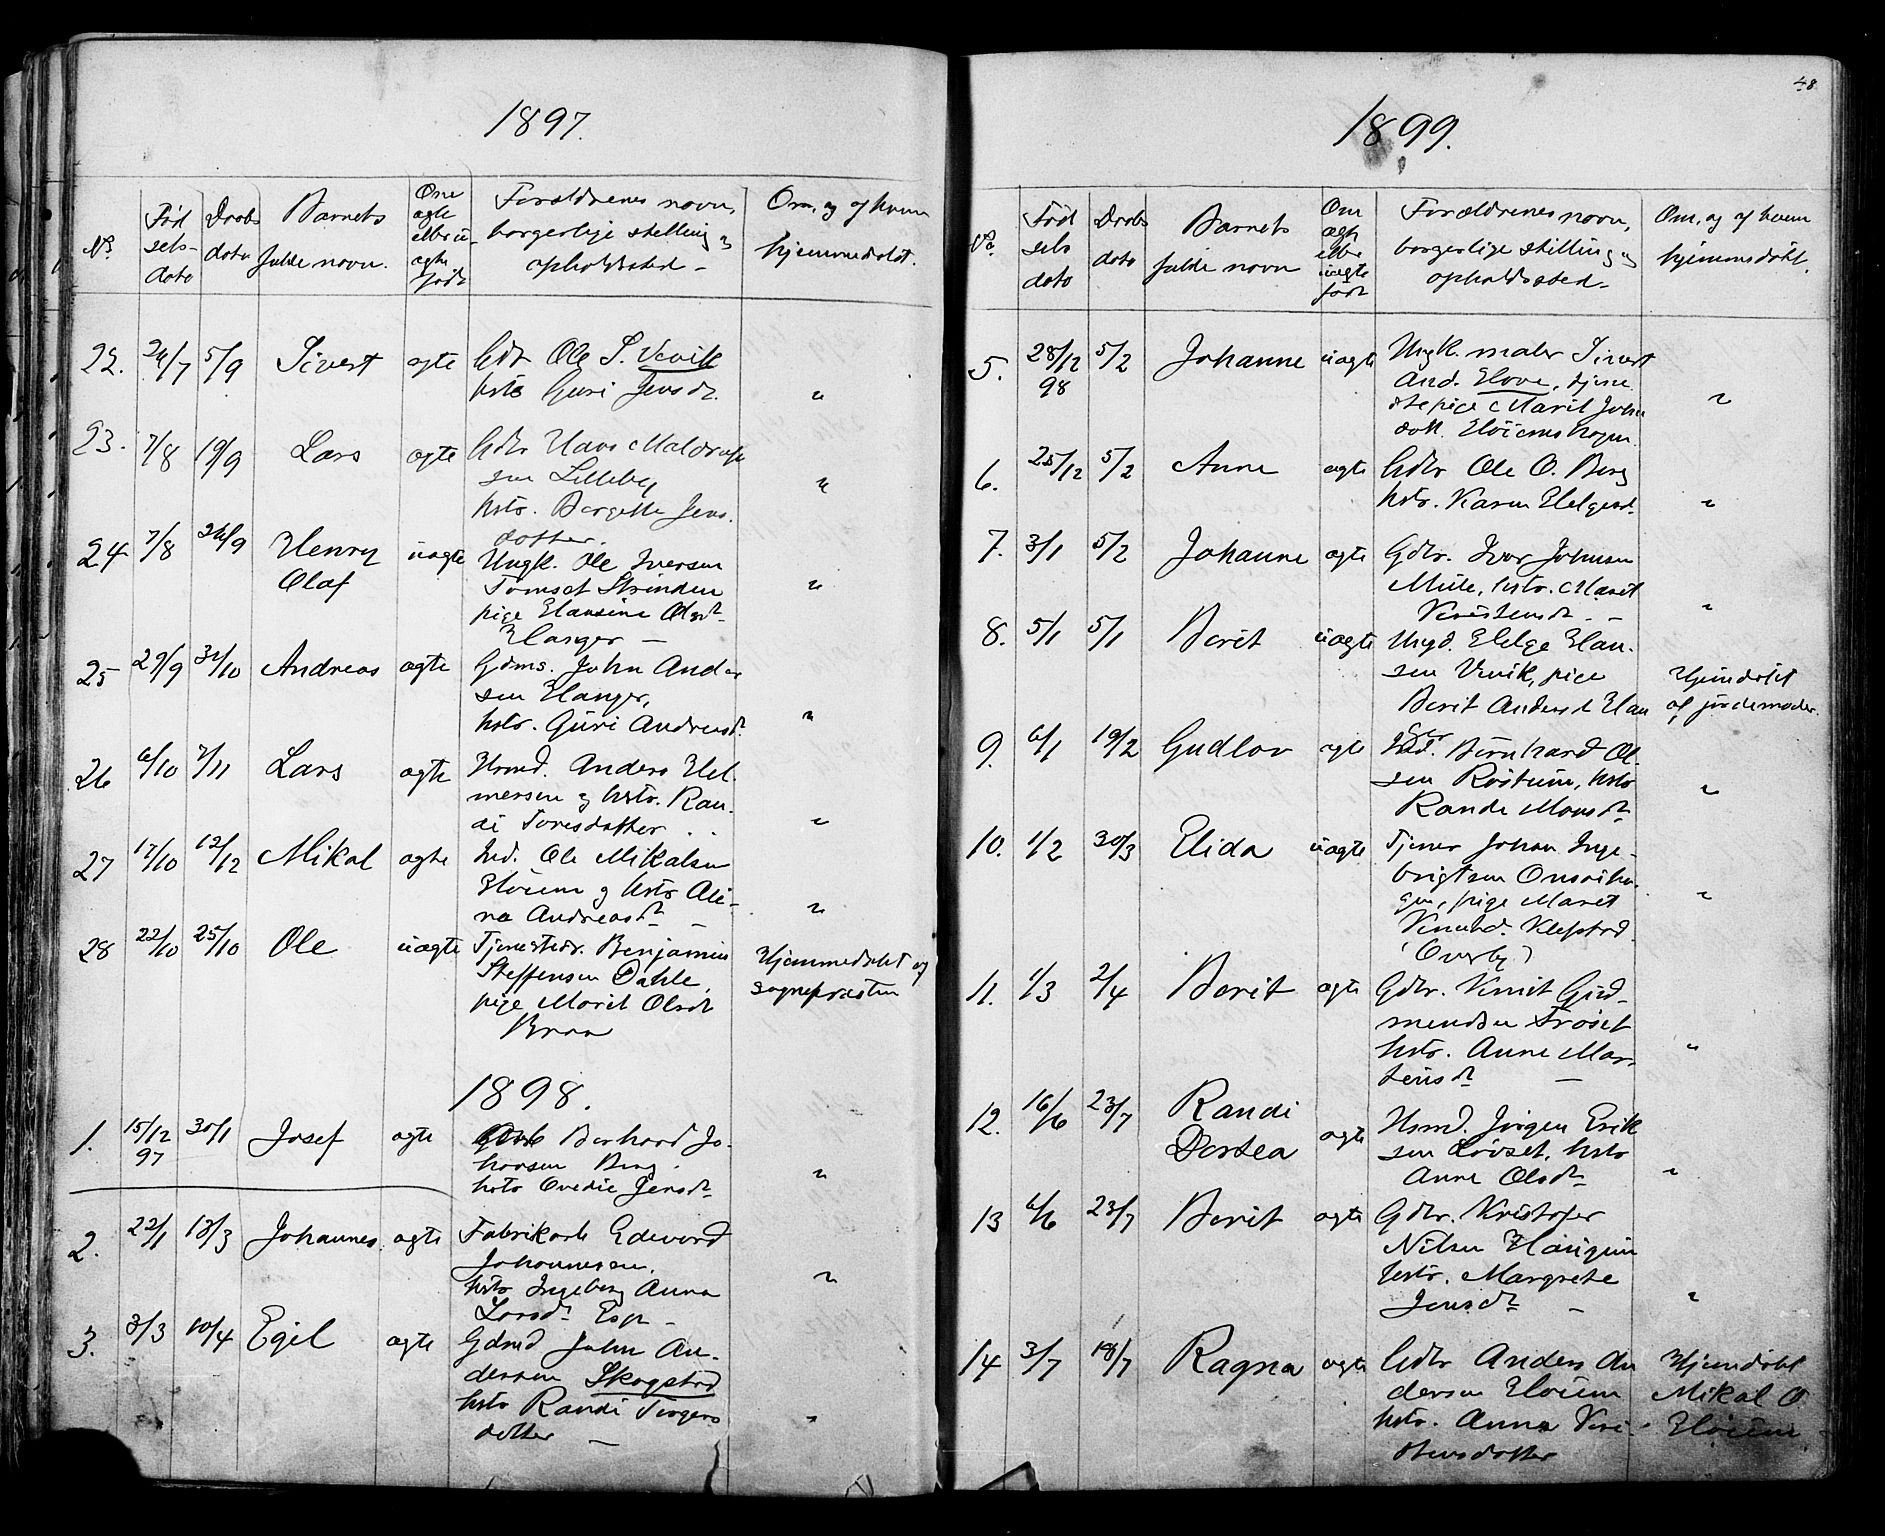 1897.
No.
Fød
sels-
dato
Daabs
dato
Barnets
fulde navn.
Om
ægte
eller u-
ægte
født
Forældrenes navn,
borgerlige stilling og
opholdssted -
Om, og af hvem
hjemmedøbt.
22. 24/7 5/9 Sivert ægte Gdbr Ole S. Vevik
hstr Guri Jensdt. "
23. 7/8 19/9 Lars ægte Gdbr Hans
sen Lilleby
hstr. Bergitte Jens.
datter. "
24 7/8 26/9 Henry uægte Ungk. Ole Iversen
Olaf Tomset Strinden
pige Hansine Olsdt
Hanger — "
25 29/9 31/10 Andreas ægte Gdms. John Ander
sen Hanger,
hstr. Guri Andreasdt. "
26 6/10 7/11 Lars ægte Husmd. Anders Hel.
mersen og hstr. Ran-
di Toresdatter "
27 17/10 12/12 Mikal ægte Ind. Ole Mikalsen
Høiem og hstr Ali-
na Andreasdt — "
28 22/10 25/10 Ole uægte Tjenestedr. Benjamin
Steffensen Dahle,
pige Marit Olsdt
Braa
Hjemmedøbt af
sognepræsten
1898.
1. 15/12 97 30/1 Josef ægte Berhard Jo-
hansen Berg.
hstr Ovedie Jensdt "
2. 22/1 13/3 Johannes ægte Fabrikarb Edevard
Johannesen,
hstr Ingeborg Anna
Larsdt Esp - "
3. 3/3 10/4 Egil ægte Gdmd John An-
dersen Skogstad
hstr Randi Torgers
datter — "
48
1899.
No.
Fød
sels
dato
Daabs
dato
Barnets
fulde navn
Om
ægte
eller
uægte
født
Forældrenes navn,
borgerlige stilling og
opholdssted -
Om, og af hvem
hjemmedøbt.
5. 28/12 98 5/2 Johanne uægte Ungk. maler Sivert
And. Hove, tjene
stepige Marit Johns
datt. Høiemshagen. "
6. 25/12 5/2 Anne ægte Gdbr Ole O. Berg
hstr. Karen Helgesd. "
7. 3/1 5/2 Johanne ægte Gdbr. Ivar Johnsen
Mule, hstr. Marit
Kristensdt. - "
8. 5/1 5/1 Berit uægte Ungd. Helge Han-
sen Vevik, pige
Berit Andersd Han
Hjemdøbt
af jordemoder.
9. 6/1 19/2 Gudlov ægte Bernhard Ol-
sen Røstum, hstr
Rande Monsdt "
10. 1/2 30/3 Elida uægte Tjener Johan Inge-
brigtsen Onsøiha-
gen, pige Marit
Knudsd. Klefstad
(Overby) "
11. 1/3 2/4 Berit ægte Gdbr. Knut Gud-
mendsen Frøset
hstr. Anne Mar-
tensdt — "
12. 16/6 23/7 Randi
Dortea ægte Husmd. Jørgen Erik
sen Løvset, hstr
Anne Olsdt "
13 6/6 23/7 Berit ægte Gdbr. Kristofer
Nilsen Haugum
hstr. Margrete
Jensdt - "
14 3/7 18/7 Ragna ægte Gdbr Anders An
dersen Høium
hstr. Anna Kri-
stensdatter
Hjemdøbt
Mikal O
Høium